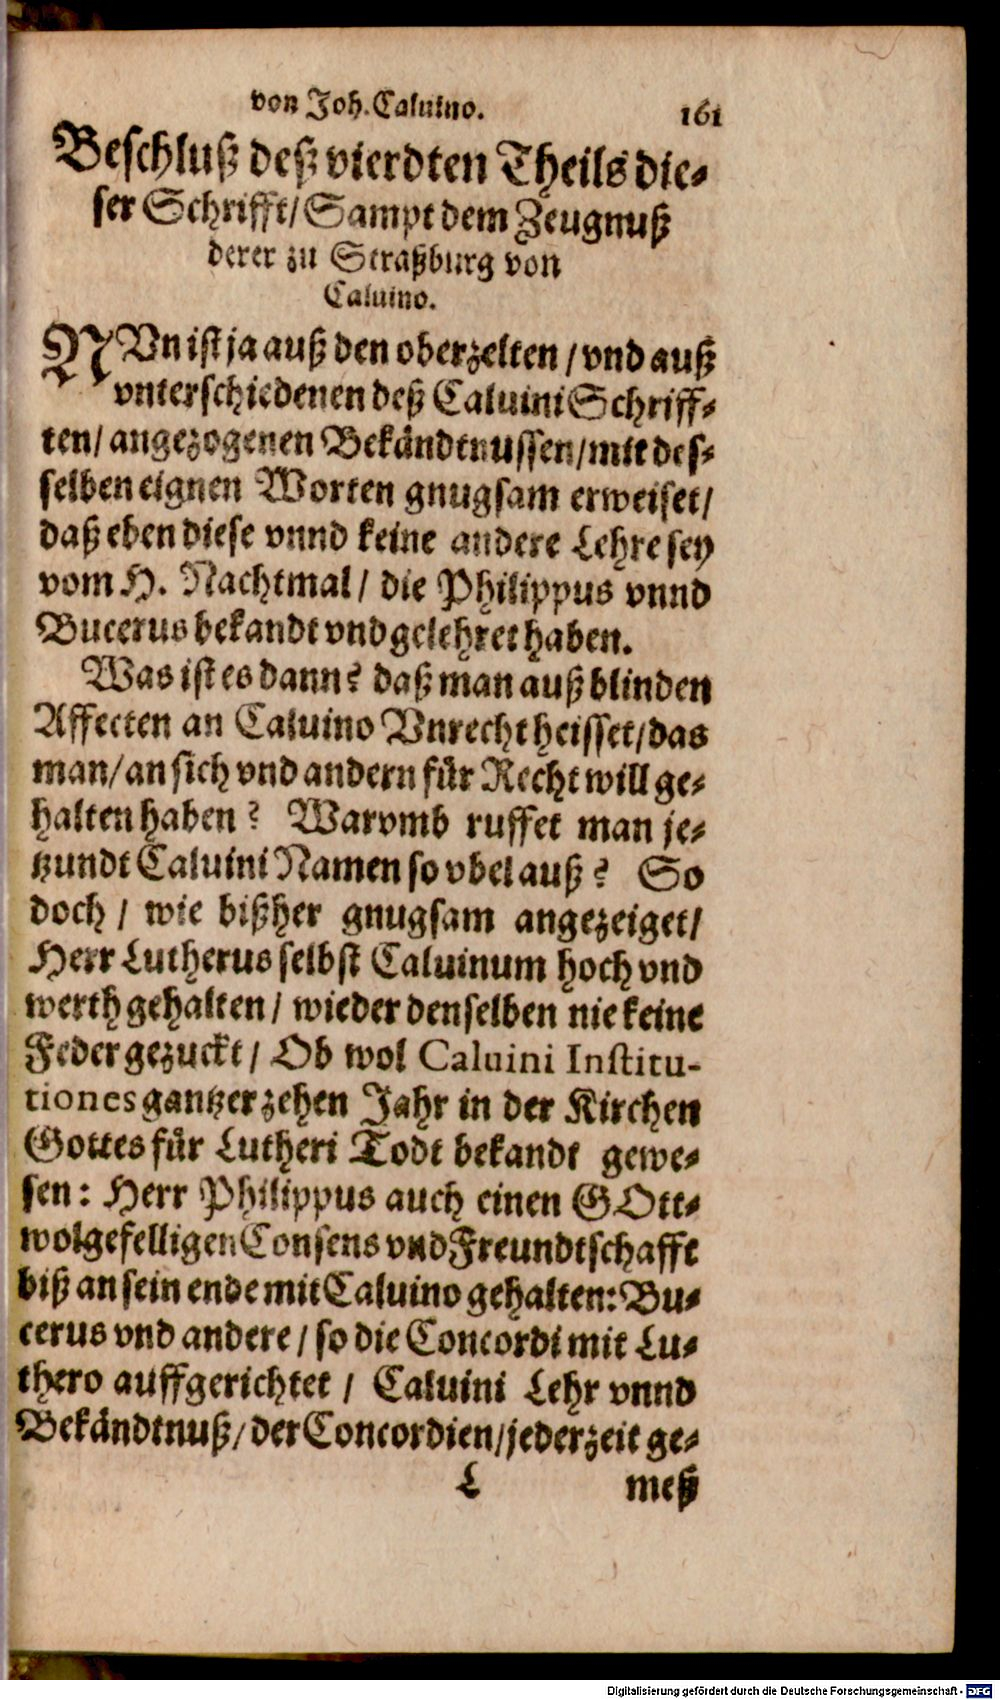 von Joh. Caluino. 161
Beschluß deß vierdten Theils die-
ser Schrifft/ Sampt dem Zeugnuß
derer zu Straßburg von
Caluino.
NVn ist ja auß den oberzelten / vnd auß
vnterschiedenen deß Caluini Schriff-
ten/ angezogenen Bekändtnussen/ mit des-
selben eignen Worten gnugsam erweiset/
daß eben diese vnnd keine andere Lehre sey
vom H. Nachtmal/ die Philippus vnnd
Bucerus bekandt vnd gelehret haben.
Was ist es dann? daß man auß blinden
Affecten an Caluino Vnrecht heisset/ das
man/ an sich vnd andern für Recht will ge-
halten haben? Warvmb ruffet man je-
tzundt Caluini Namen so vbel auß? So
doch / wie bißher gnugsam angezeiget/
Herr Lutherus selbst Caluinum hoch vnd
werth gehalten/ wieder denselben nie keine
Feder gezuckt/ Ob wol Caluini Institu-
tiones gantzer zehen Jahr in der Kirchen
Gottes für Lutheri Todt bekandt gewe-
sen: Herr Philippus auch einen GOtt-
wolgefelligen Consens vnd Freundtschafft
biß an sein ende mit Caluino gehalten: Bu-
cerus vnd andere / so die Concordi mit Lu-
thero auffgerichtet / Caluini Lehr vnnd
Bekändtnuß/ der Concordien/ jederzeit ge-
L meß
Digitalisierung gefördert durch die Deutsche Forschungsgemeinschaft - DFG